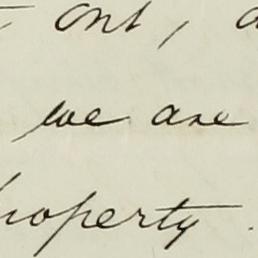 out,
we are
property.